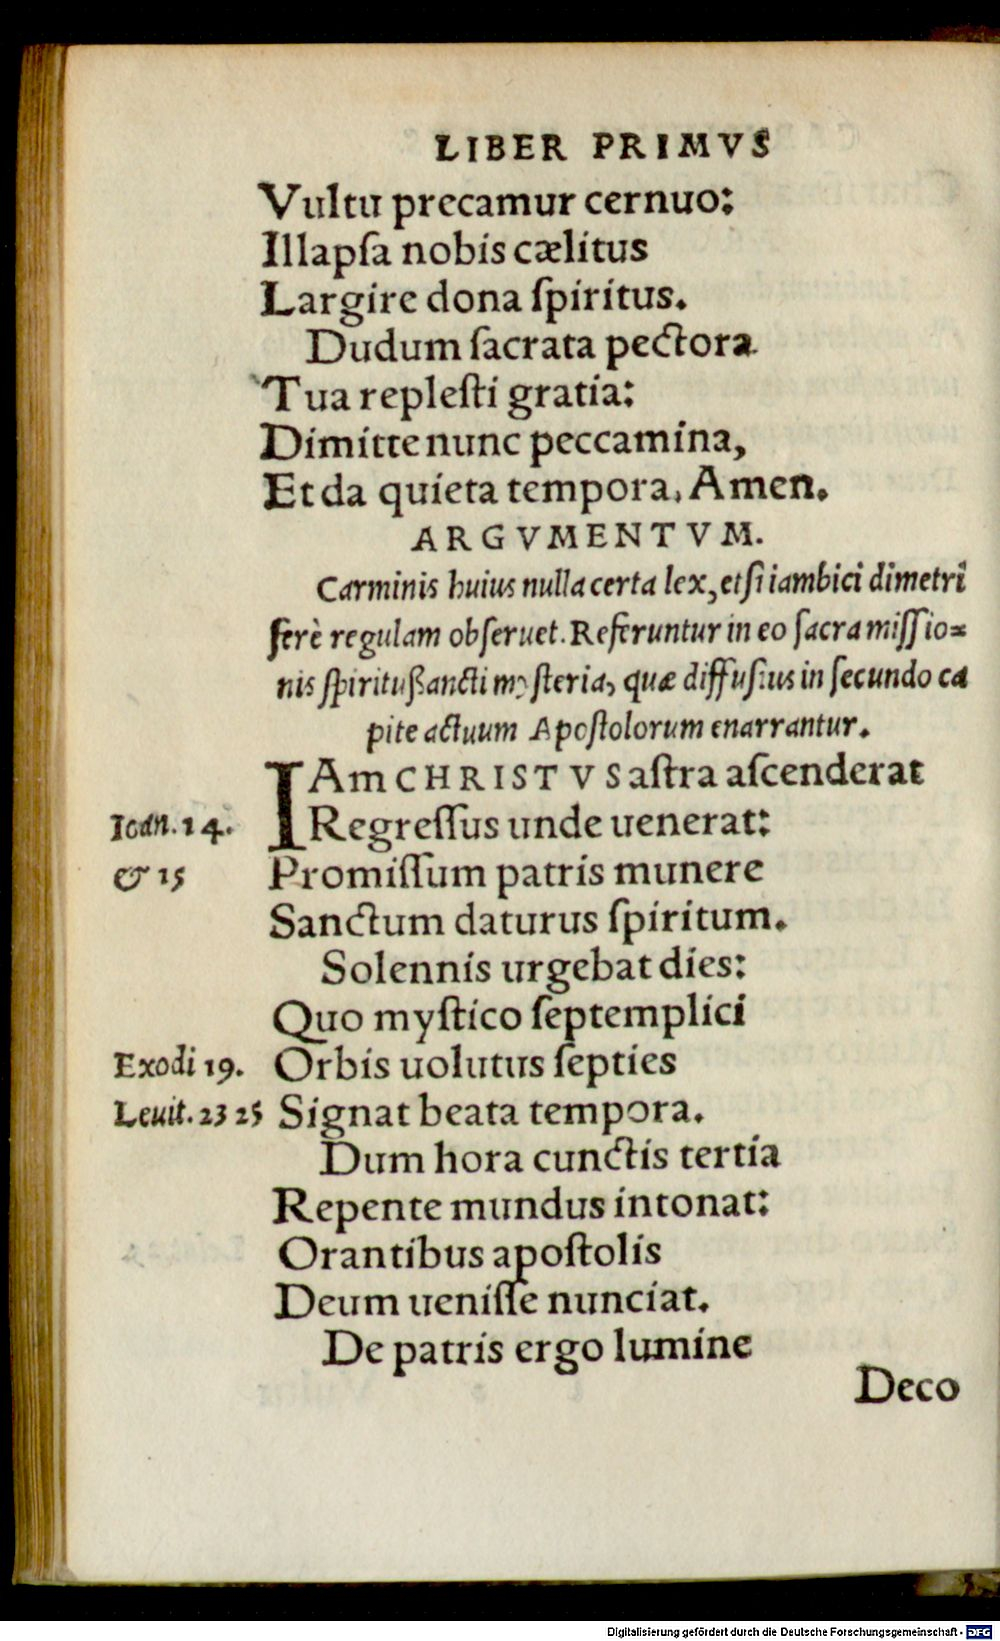 LIBER PRIMVS
Vultu precamur cernuo:
Illapſa nobis cælitus
Largire dona ſpiritus.
Dudum ſacrata pectora
Tua repleſti gratia:
Dimitte nunc peccamina,
Et da quieta tempora, Amen.
ARGVMENTVM.
Carminis huius nulla certa lex, etſi iambici dimetri
ferè regulam obſeruet. Referuntur in eo ſacra miſſio=
nis ſpirituſſancti myſteria, quæ diffuſius in ſecundo ca
pite actuum Apoſtolorum enarrantur.
IAm CHRISTVS aſtra aſcenderat
Ioan. 14. Regreſſus unde uenerat:
& 15 Promiſſum patris munere
Sanctum daturus ſpiritum.
Solennis urgebat dies:
Quo myſtico ſeptemplici
Exodi 19. Orbis uolutus ſepties
Leuit. 23 25 Signat beata tempora.
Dum hora cunctis tertia
Repente mundus intonat:
Orantibus apoſtolis
Deum ueniſſe nunciat.
De patris ergo lumine
Deco
Digitalisierung gefördert durch die Deutsche Forschungsgemeinschaft - DFG